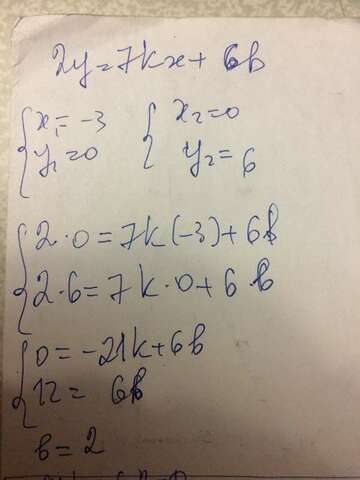 2y=7kx+6b
{x₁=-3 {x₂=0
{y₁=0 {y₂=6
{2·0=7k(-3)+6b
{2·6=7k·0+6·b
{0=-21k+6b
{12=6b
b=2